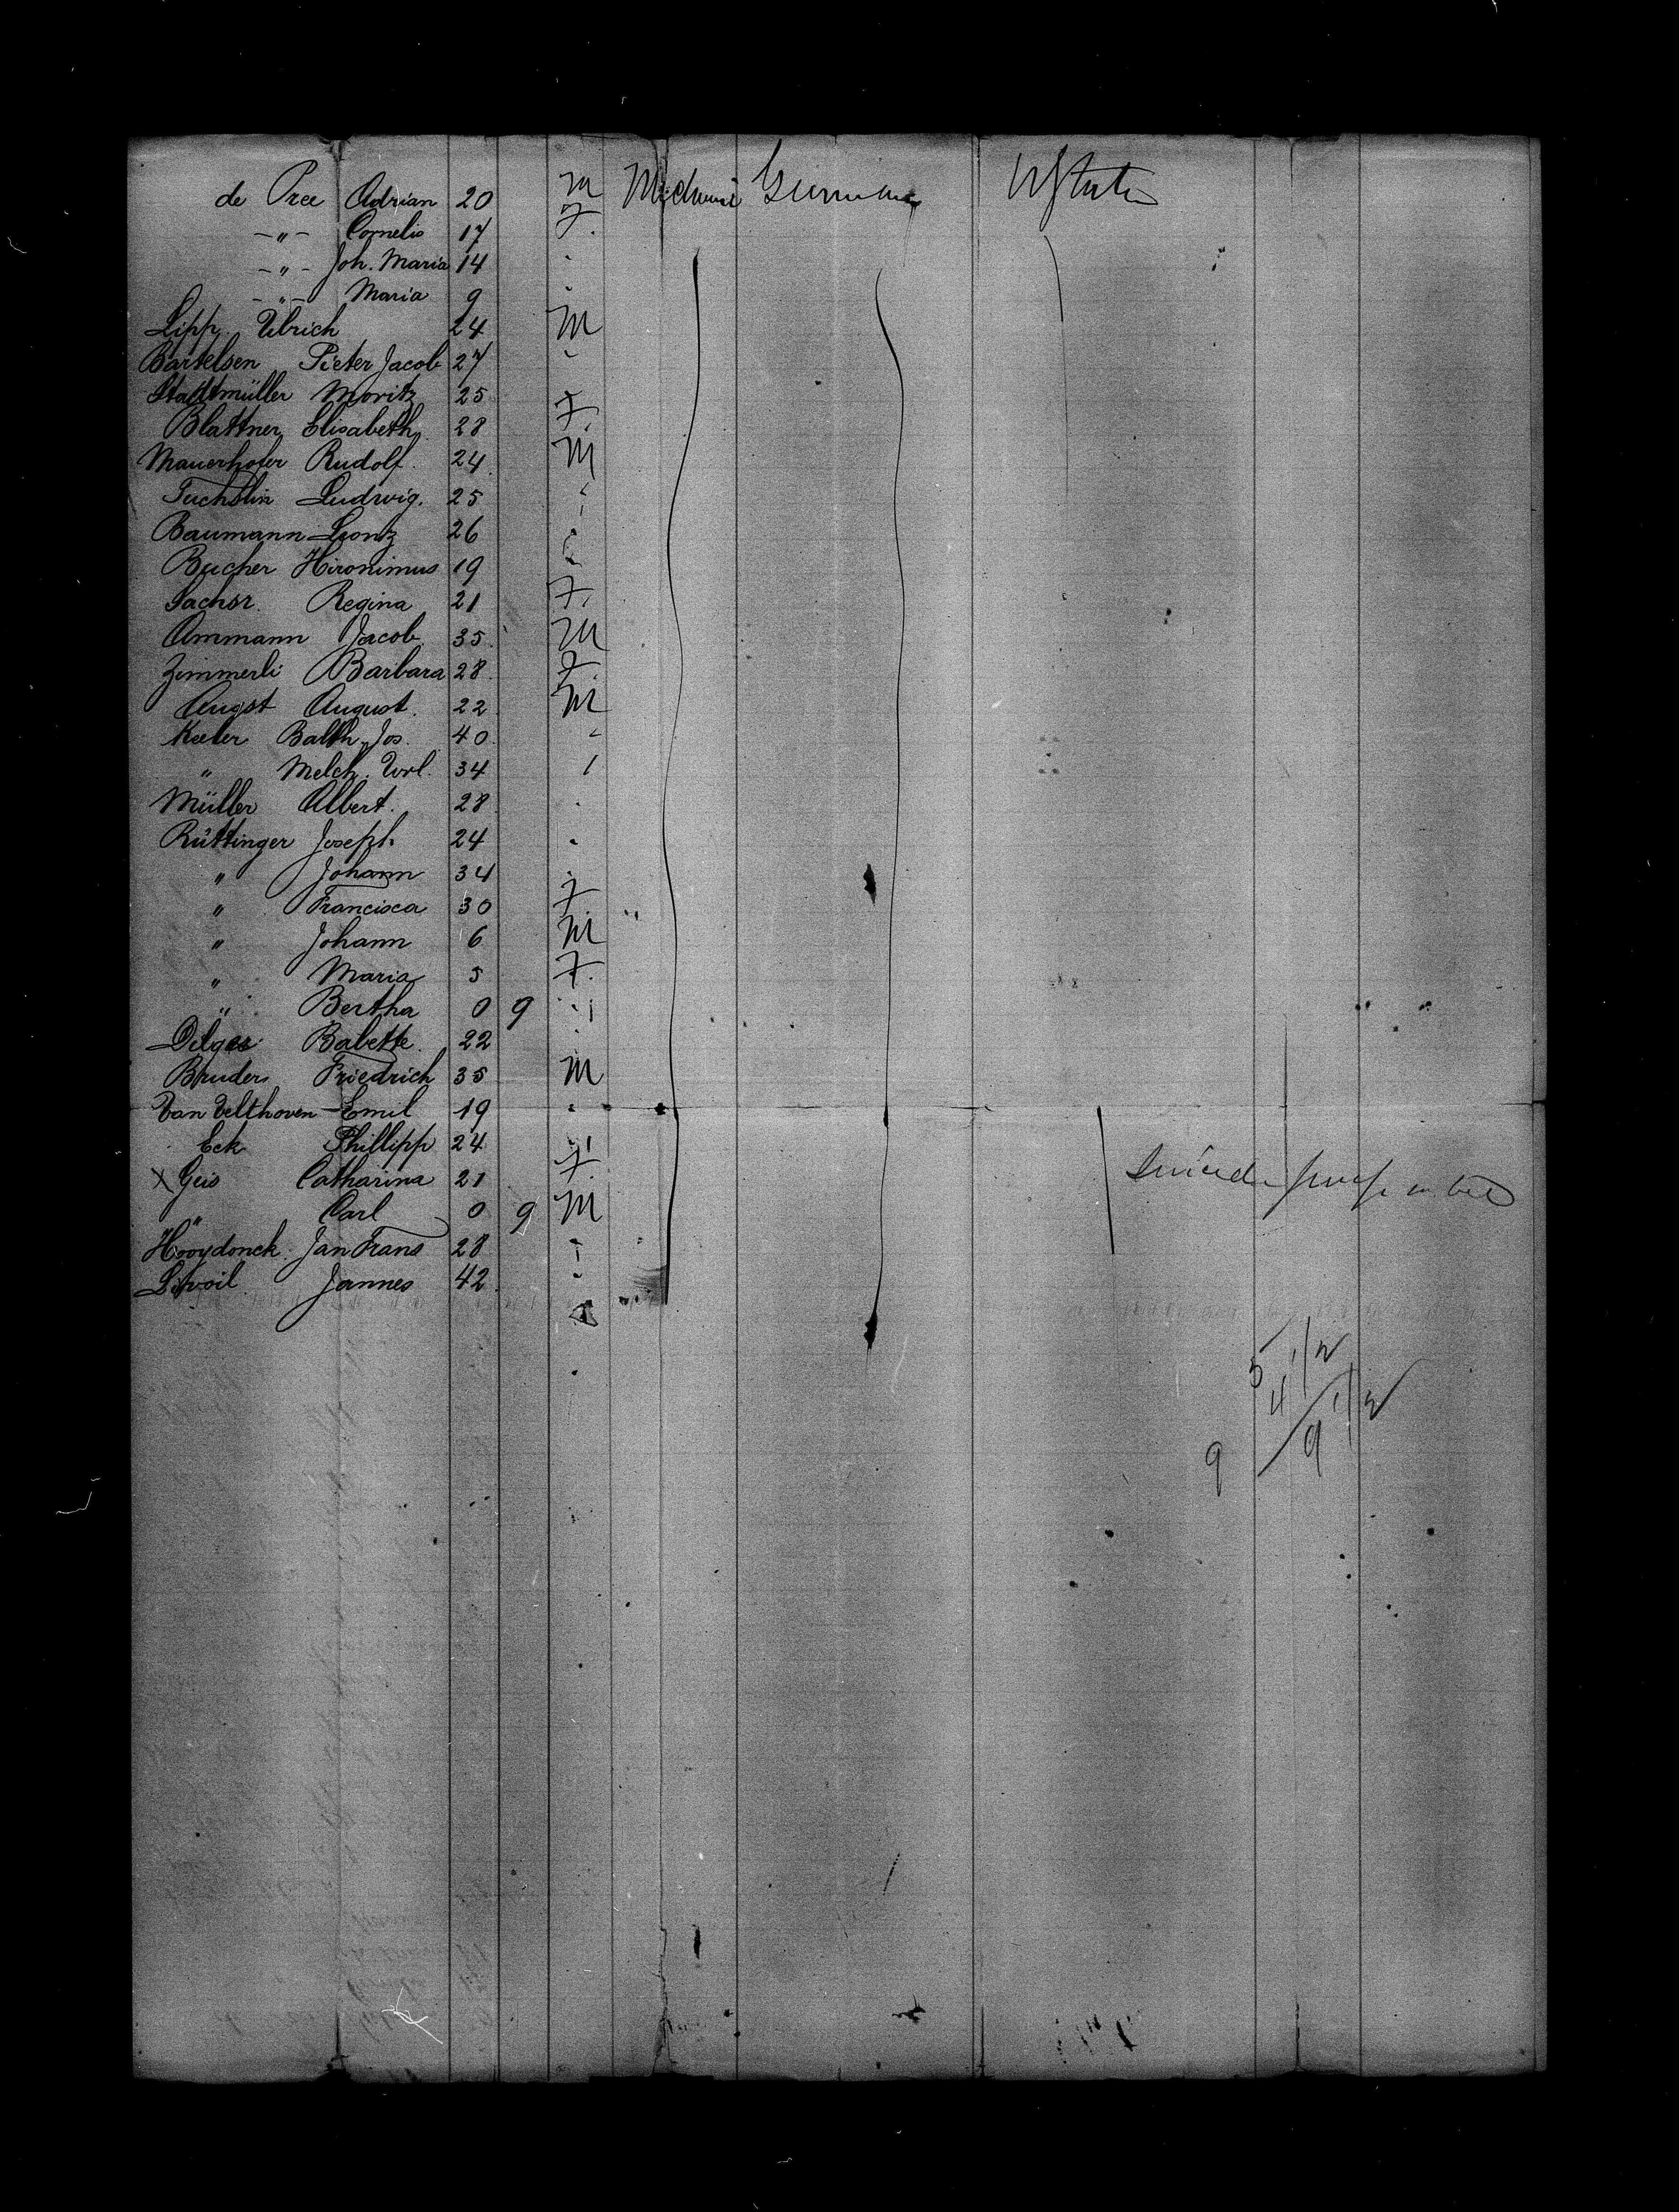 de Pree Adrian 20 M Mechanic Germany U States
-"- Cornelis 17 F.
-"- Joh. Maria 14
-"- Maria 9
Lipp Ulrich 24 M
Bartelsen Pieter Jacob 27
Stadtmüller Moritz 25
Blattner Elisabeth 28 F.
Mauerhofer Rudolf 24 M
Fuchslin Ludwig. 25
Baumann Lionz 26
Bucher Hironimus 19
Sachsr. Regina 21 F.
Ammann Jacob 35 M
Zimmerli Barbara 28 F
Augst August 22 M
Keeler Balth. Jos. 40
" Melch. 34
Müller Albert. 28
Rüttinger Joseph. 24
" Johann 34
" Francisca 30 F
" Johann 6 M
" Maria 5 F.
" Bertha 0 9
Babette 22
Bruder Friedrich 35 M
Van Velthoven Emil 19
Eck Phillipp 24
X Geis Catharina 21 F
" Carl 0 9 M
Hooydonck Jan Frans 28
Jannes 42
5 1/2
4
9 9 1/2